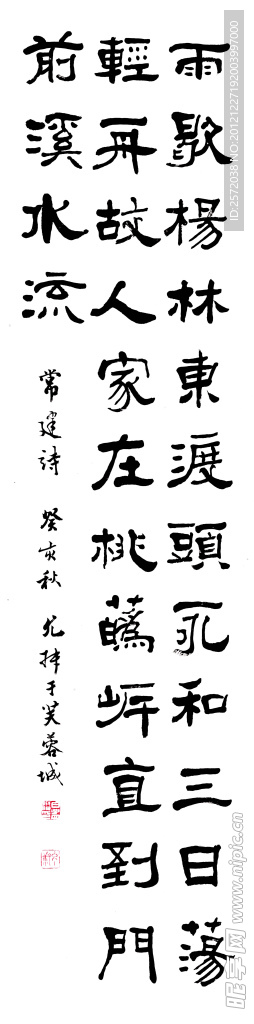 雨歇楊林東渡頭永和三日蕩
輕舟故人家在桃蘤岸直到門
前溪水流
常建詩 癸亥秋 于芙蓉城
ID:2572038NO:20121227192003997000
昵享网 www.nipic.cn